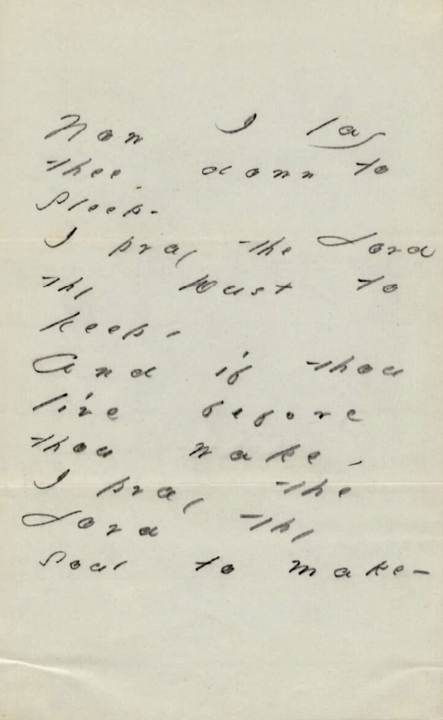 Now I lay
thee down to
Sleep -
I pray the Lord
thy Dust to
keep,
And if thou
live before
thou wake,
I pray the
Lord thy
Soul to make -